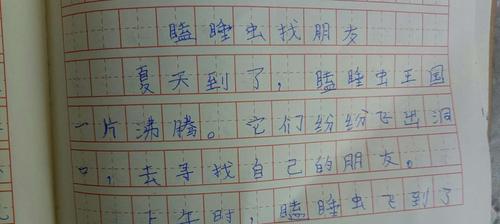 瞌睡虫找朋友
夏天到了，瞌睡虫王国
一片沸腾。它们纷纷飞出洞
口，去寻找自己的朋友。
上午时，瞌睡虫飞到了